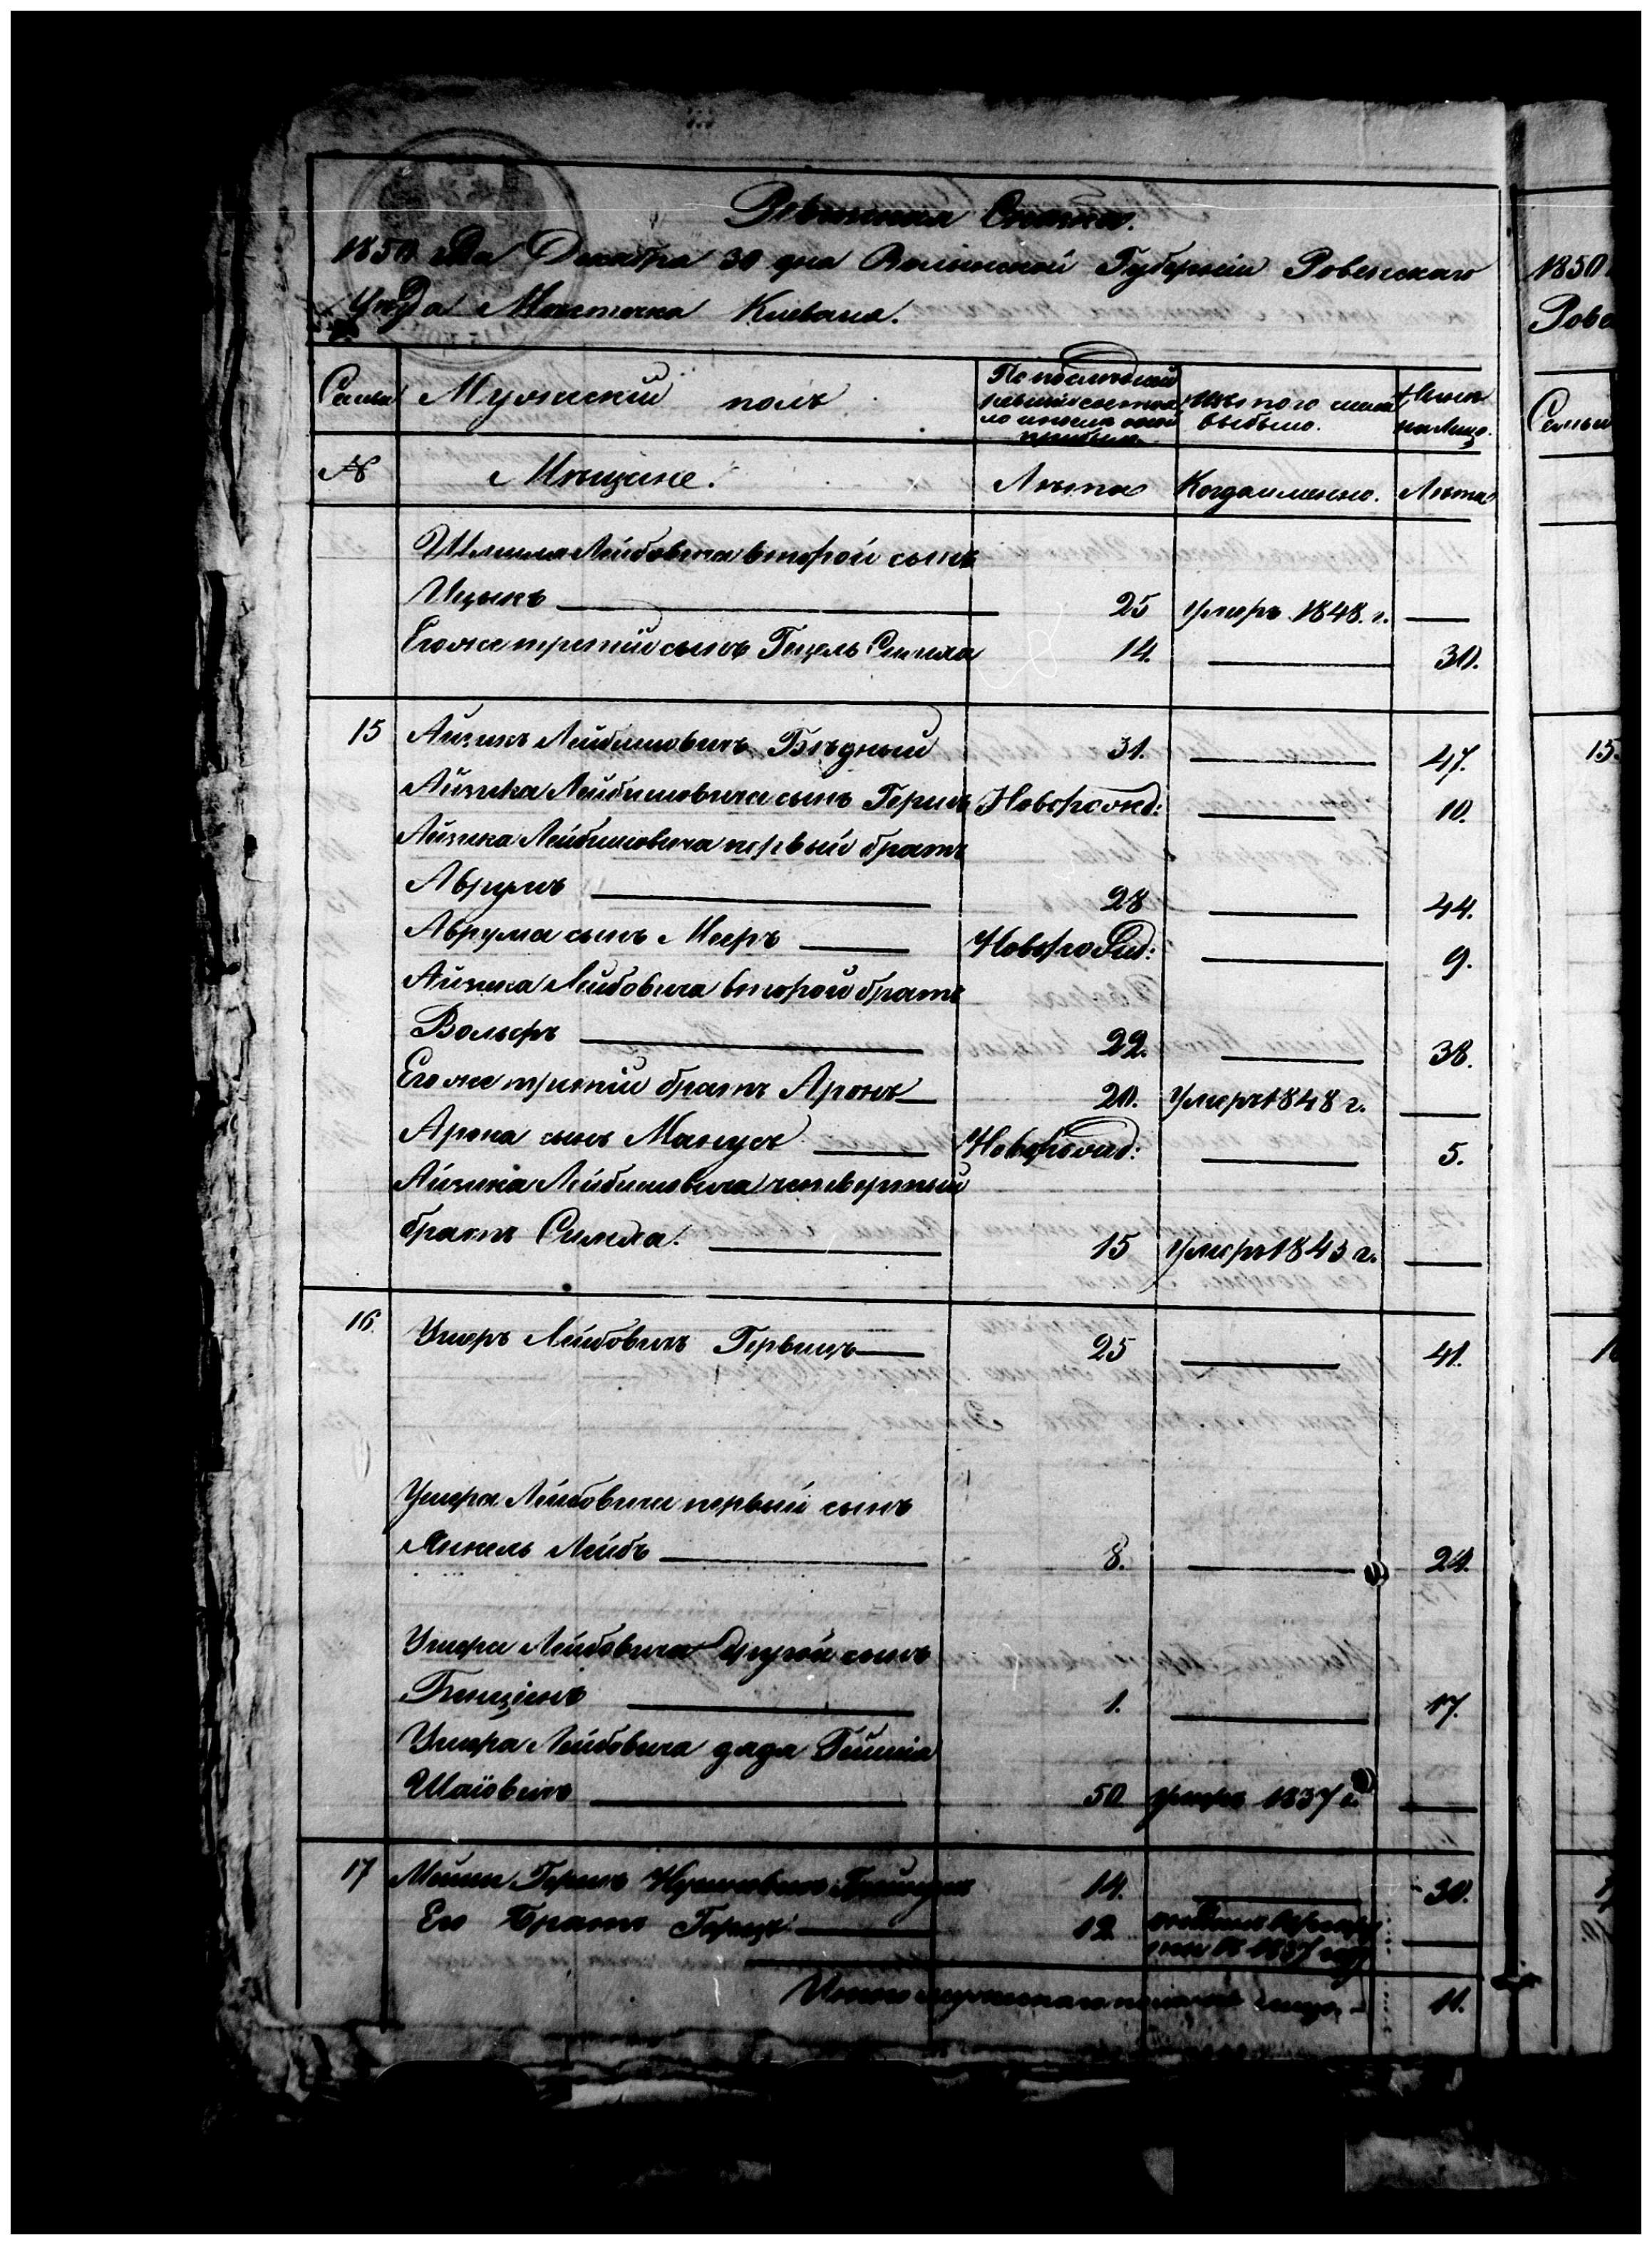 Ревизская Сказка.
1850 года Декабря 30 дня Волынской Губернии Ровенскаго
Уезда Местечка Клевана.
Семьи
Мужеский полъ
По последней
ревизии состоя
ло и после оной
прибыло
Изъ того числа
выбыло.
Ныне
на лицо.
№
Мещане.
Лета
Когда именно.
Лета
Шмиля Лейбовича второй сынъ
Ицыкъ 25 умеръ 1848. г.
Его же третий сынъ Гецель Симха 14. 30.
15 Айзикъ Лейбишовичъ Бледный 31. 47.
Айзика Лейбишовича сынъ Гершъ Новорожд: 10.
Айзика Лейбишовича первый братъ
Аврумъ 28 44.
Аврума сынъ Мееръ Новорожд: 9.
Айзика Лейбовича второй братъ
Вольфъ 22. 38.
Его же третий братъ Аронъ 20. Умеръ 1848 г.
Арона сынъ Манусъ Новорожд: 5.
Айзика Лейбишовича четвертый
братъ Симха. 15 умеръ 1843 г.
16 Ушеръ Лейбовичъ Гервицъ 25 41.
Ушера Лейбовича первый сынъ
Янкель Лейбъ 8. 24.
Ушера Лейбовича другой сынъ
Бенционъ 1. 17.
Ушера Лейбовича дядя
Шаiовичъ 50. умеръ 1837 г.
17 Гершъ 14. 30.
Его Братъ Герцъ 12. 1837
Итого мужескаго пола на лицо 11.
1850
Рове
Семьи
15.